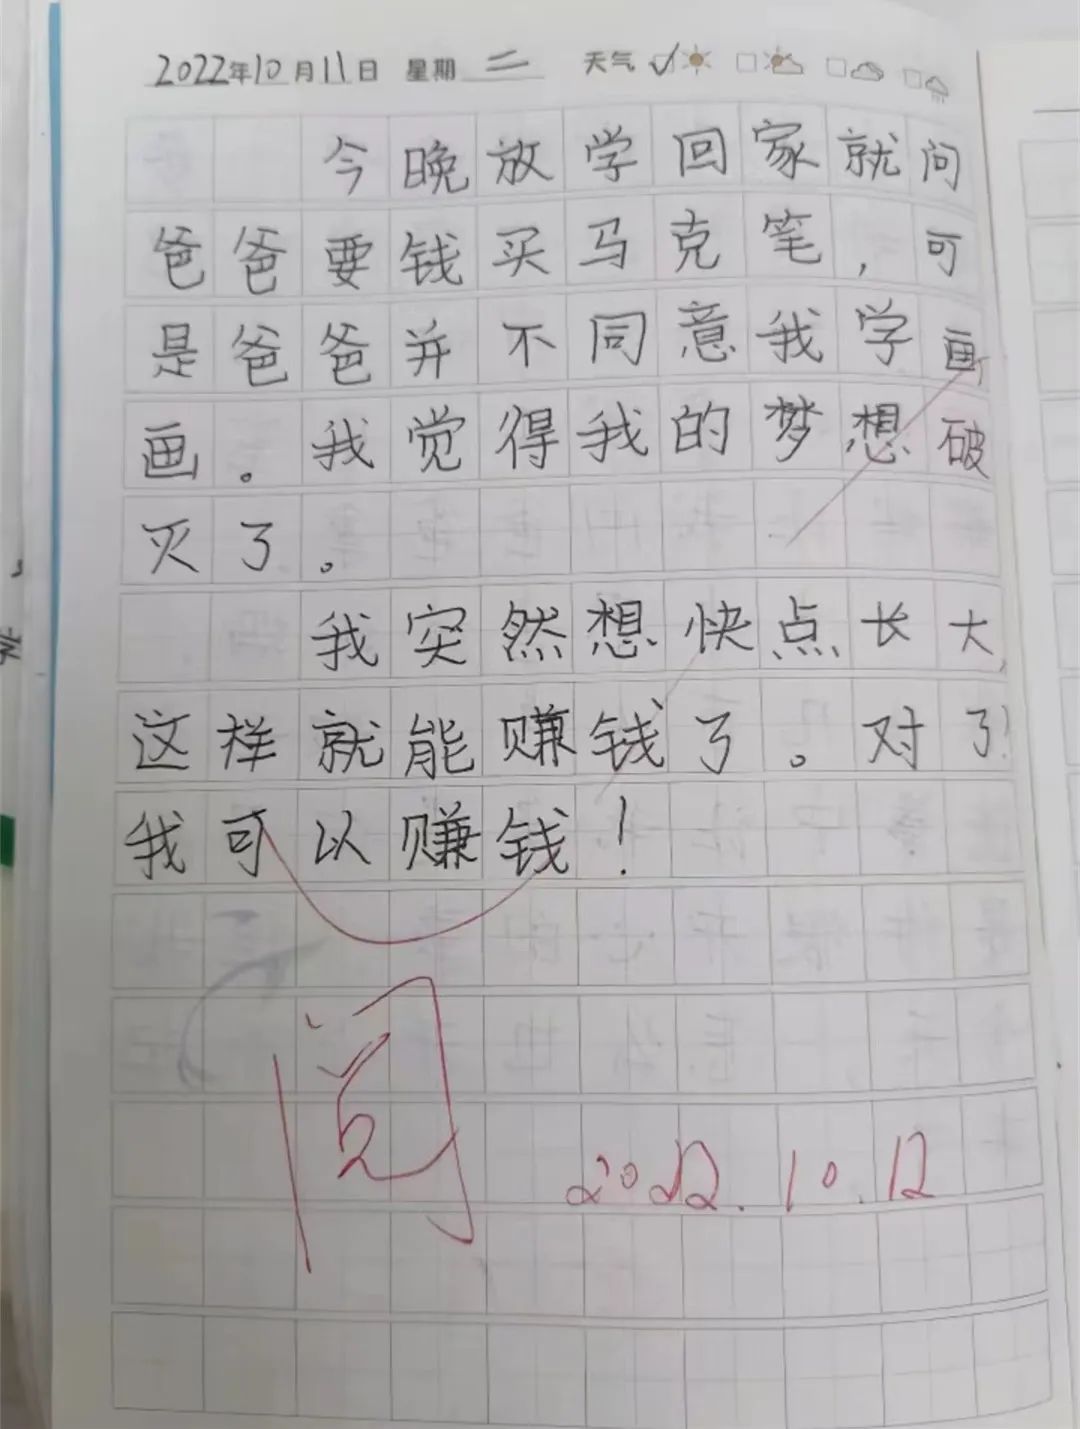 2022年10月11日 星期二 天气
今晚放学回家就问
爸爸要钱买马克笔，可
是爸爸并不同意我学画
画。我觉得我的梦想破
灭了。
我突然想快点长大，
这样就能赚钱了。对了！
我可以赚钱！
阅
2022.10.12